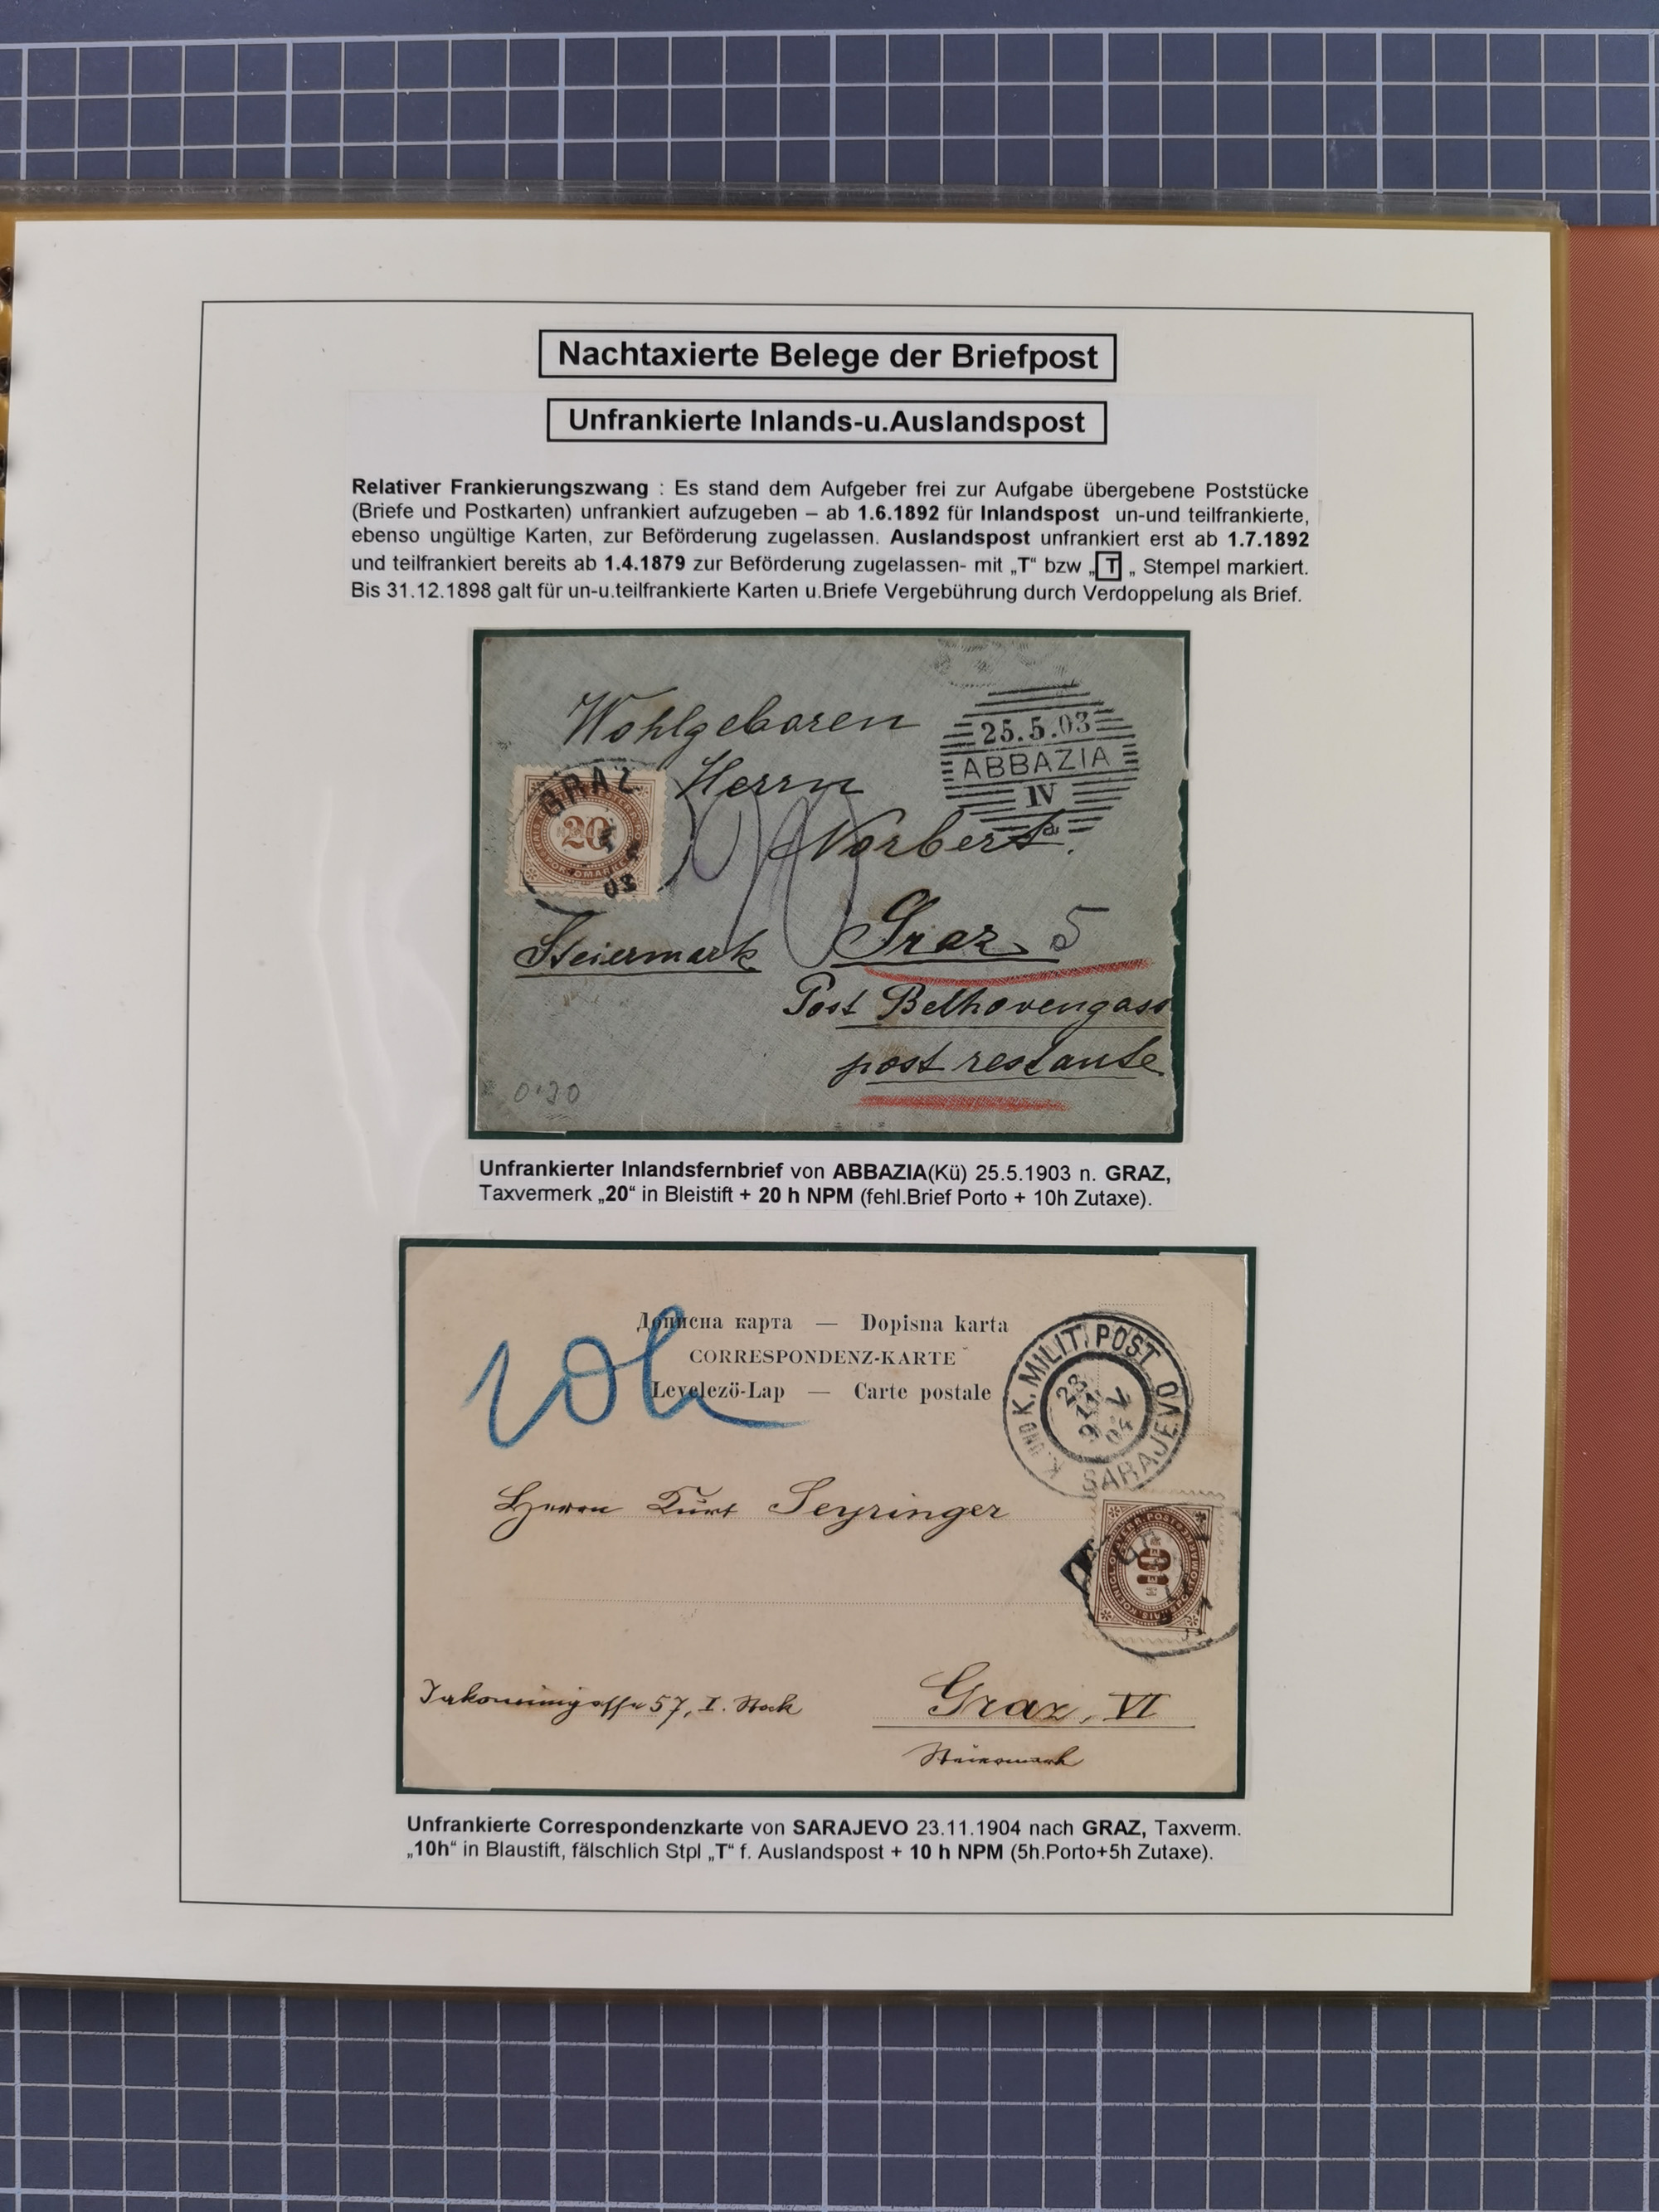 Nachtaxierte Belege der Briefpost
Unfrankierte Inlands-u.Auslandspost
Relativer Frankierungszwang : Es stand dem Aufgeber frei zur Aufgabe übergebene Poststücke
(Briefe und Postkarten) unfrankiert aufzugeben – ab 1.6.1892 für Inlandspost un-und teilfrankierte,
ebenso ungültige Karten, zur Beförderung zugelassen. Auslandspost unfrankiert erst ab 1.7.1892
und teilfrankiert bereits ab 1.4.1879 zur Beförderung zugelassen- mit „T“ bzw „T „ Stempel markiert.
Bis 31.12.1898 galt für un-u.teilfrankierte Karten u.Briefe Vergebührung durch Verdoppelung als Brief.
Wohlgeboren
25.5.03
ABBAZIA
IV
Herrn
GRAZ
20
03
20
Norbert.
Steiermark
Graz 5
Post Bethovengass
post restante
Unfrankierter Inlandsfernbrief von ABBAZIA(Kü) 25.5.1903 n. GRAZ,
Taxvermerk „20“ in Bleistift + 20 h NPM (fehl.Brief Porto + 10h Zutaxe).
10h
Дописна карта — Dopisna karta
CORRESPONDENZ-KARTE
Levelező-Lap — Carte postale
K. UND K. MILIT. POST
SARAJEVO
Herrn Kurt Seyringer
10
T
Jakominigasse 57, I. Stock
Graz, VI
Steiermark
Unfrankierte Correspondenzkarte von SARAJEVO 23.11.1904 nach GRAZ, Taxverm.
„10h“ in Blaustift, fälschlich Stpl „T“ f. Auslandspost + 10 h NPM (5h.Porto+5h Zutaxe).